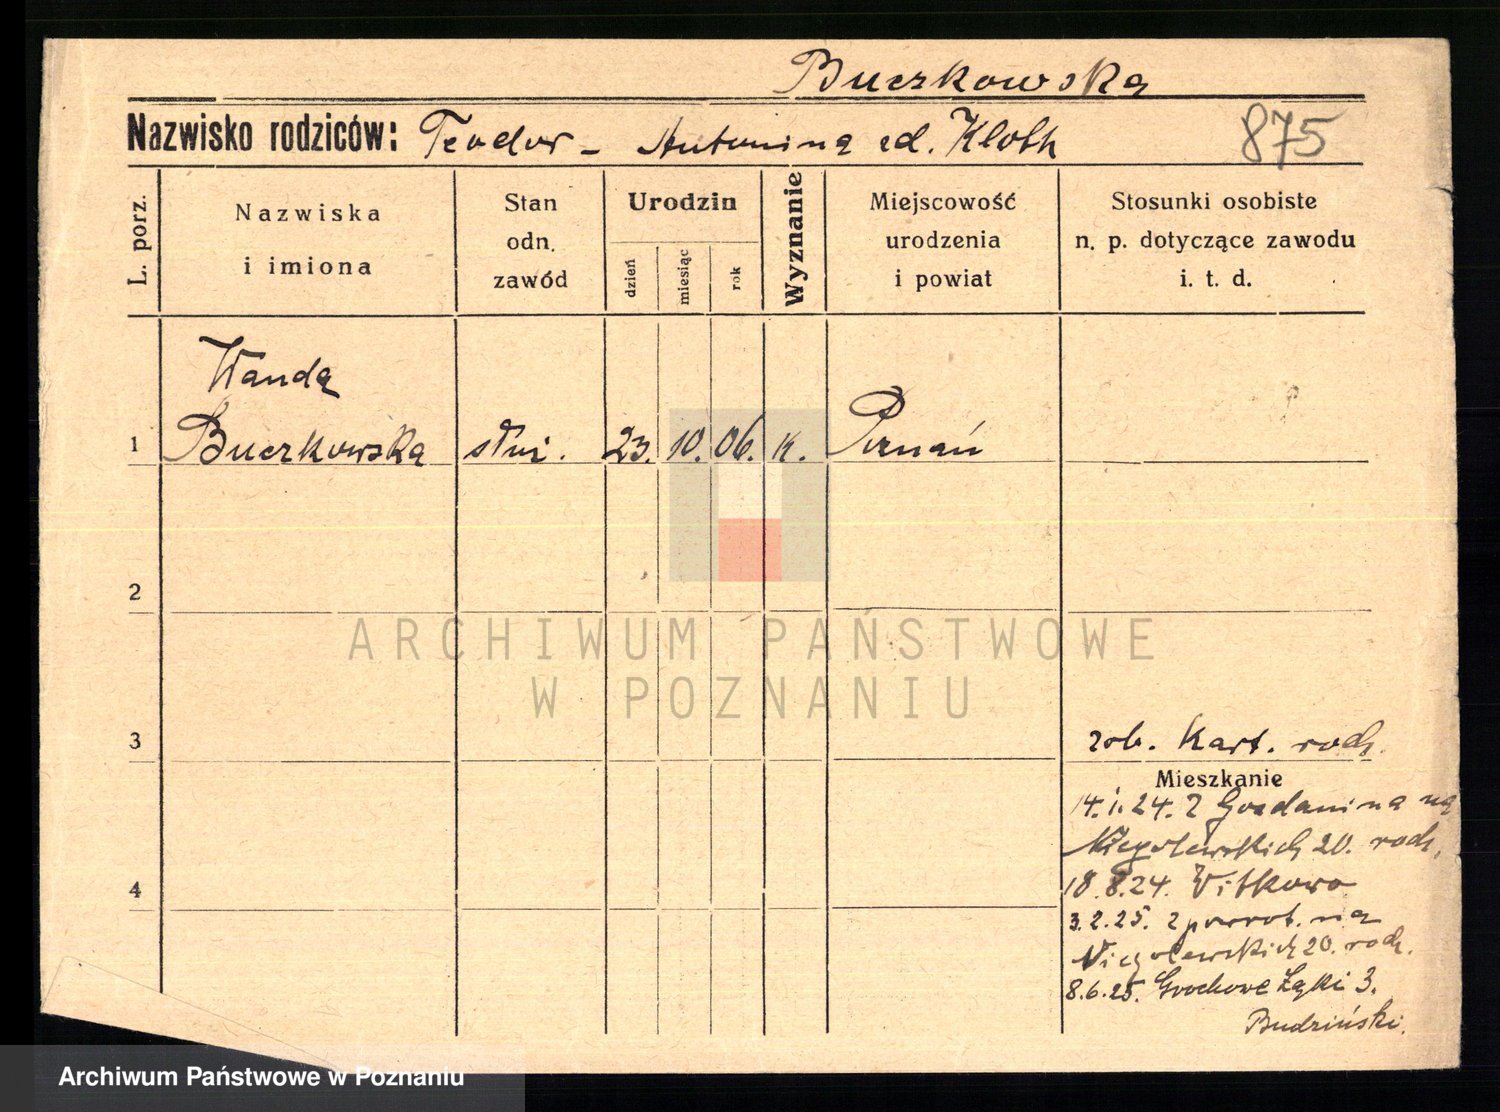 Buczkowska
Nazwisko rodziców: Teodor - Antonina zd. Kloth 875
L. porz.
Nazwiska
i imiona
Stan
odn.
zawód
Urodzin
dzień
miesiąc
rok
Wyznanie
Miejscowość
urodzenia
i powiat
Stosunki osobiste
n. p. dotyczące zawodu
i. t. d.
Wanda
1 Buczkowska służ. 23. 10. 06. k. Poznań
2
ARCHIWUM PAŃSTWOWE
W POZNANIU
3 zob. Kart. rodz.
Mieszkanie
14. 1. 24. z na
Niegolewskich 20. rodz.
4 18. 8. 24. Witkowo
3. 2. 25. z powrot. na
Niegolewskich 20. rodz.
8. 6. 25. Grochowe Łąki 3.
Budziński.
Archiwum Państwowe w Poznaniu